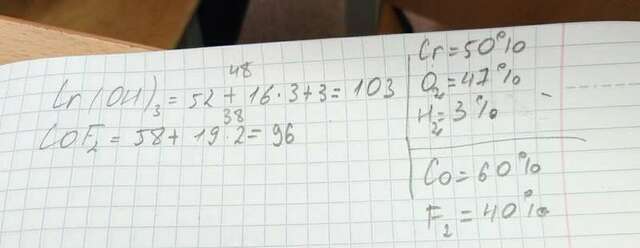 48
Cr(OH)₃ = 52 + 16·3+3= 103
38
COF₂ = 58+ 19·2= 96
Cr=50%
O₂=47%
H₂=3%
Co=60%
F₂=40%